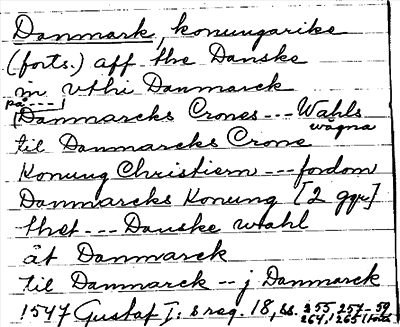 Danmark, konungarike
(forts.) aff the Danske
in uthi Danmarck
på---
[Danmarcks Crones --- Wahls
wägna
til Danmarcks Crone
Konung Christiern --- fordom
Danmarcks Konung [2 ggr]
thet --- Danske wahl
åt Danmarck
til Danmarck -- j Danmarck
1547 Gustaf I:s reg. 18, ss. 255, 257-59
264, 265 (forts.